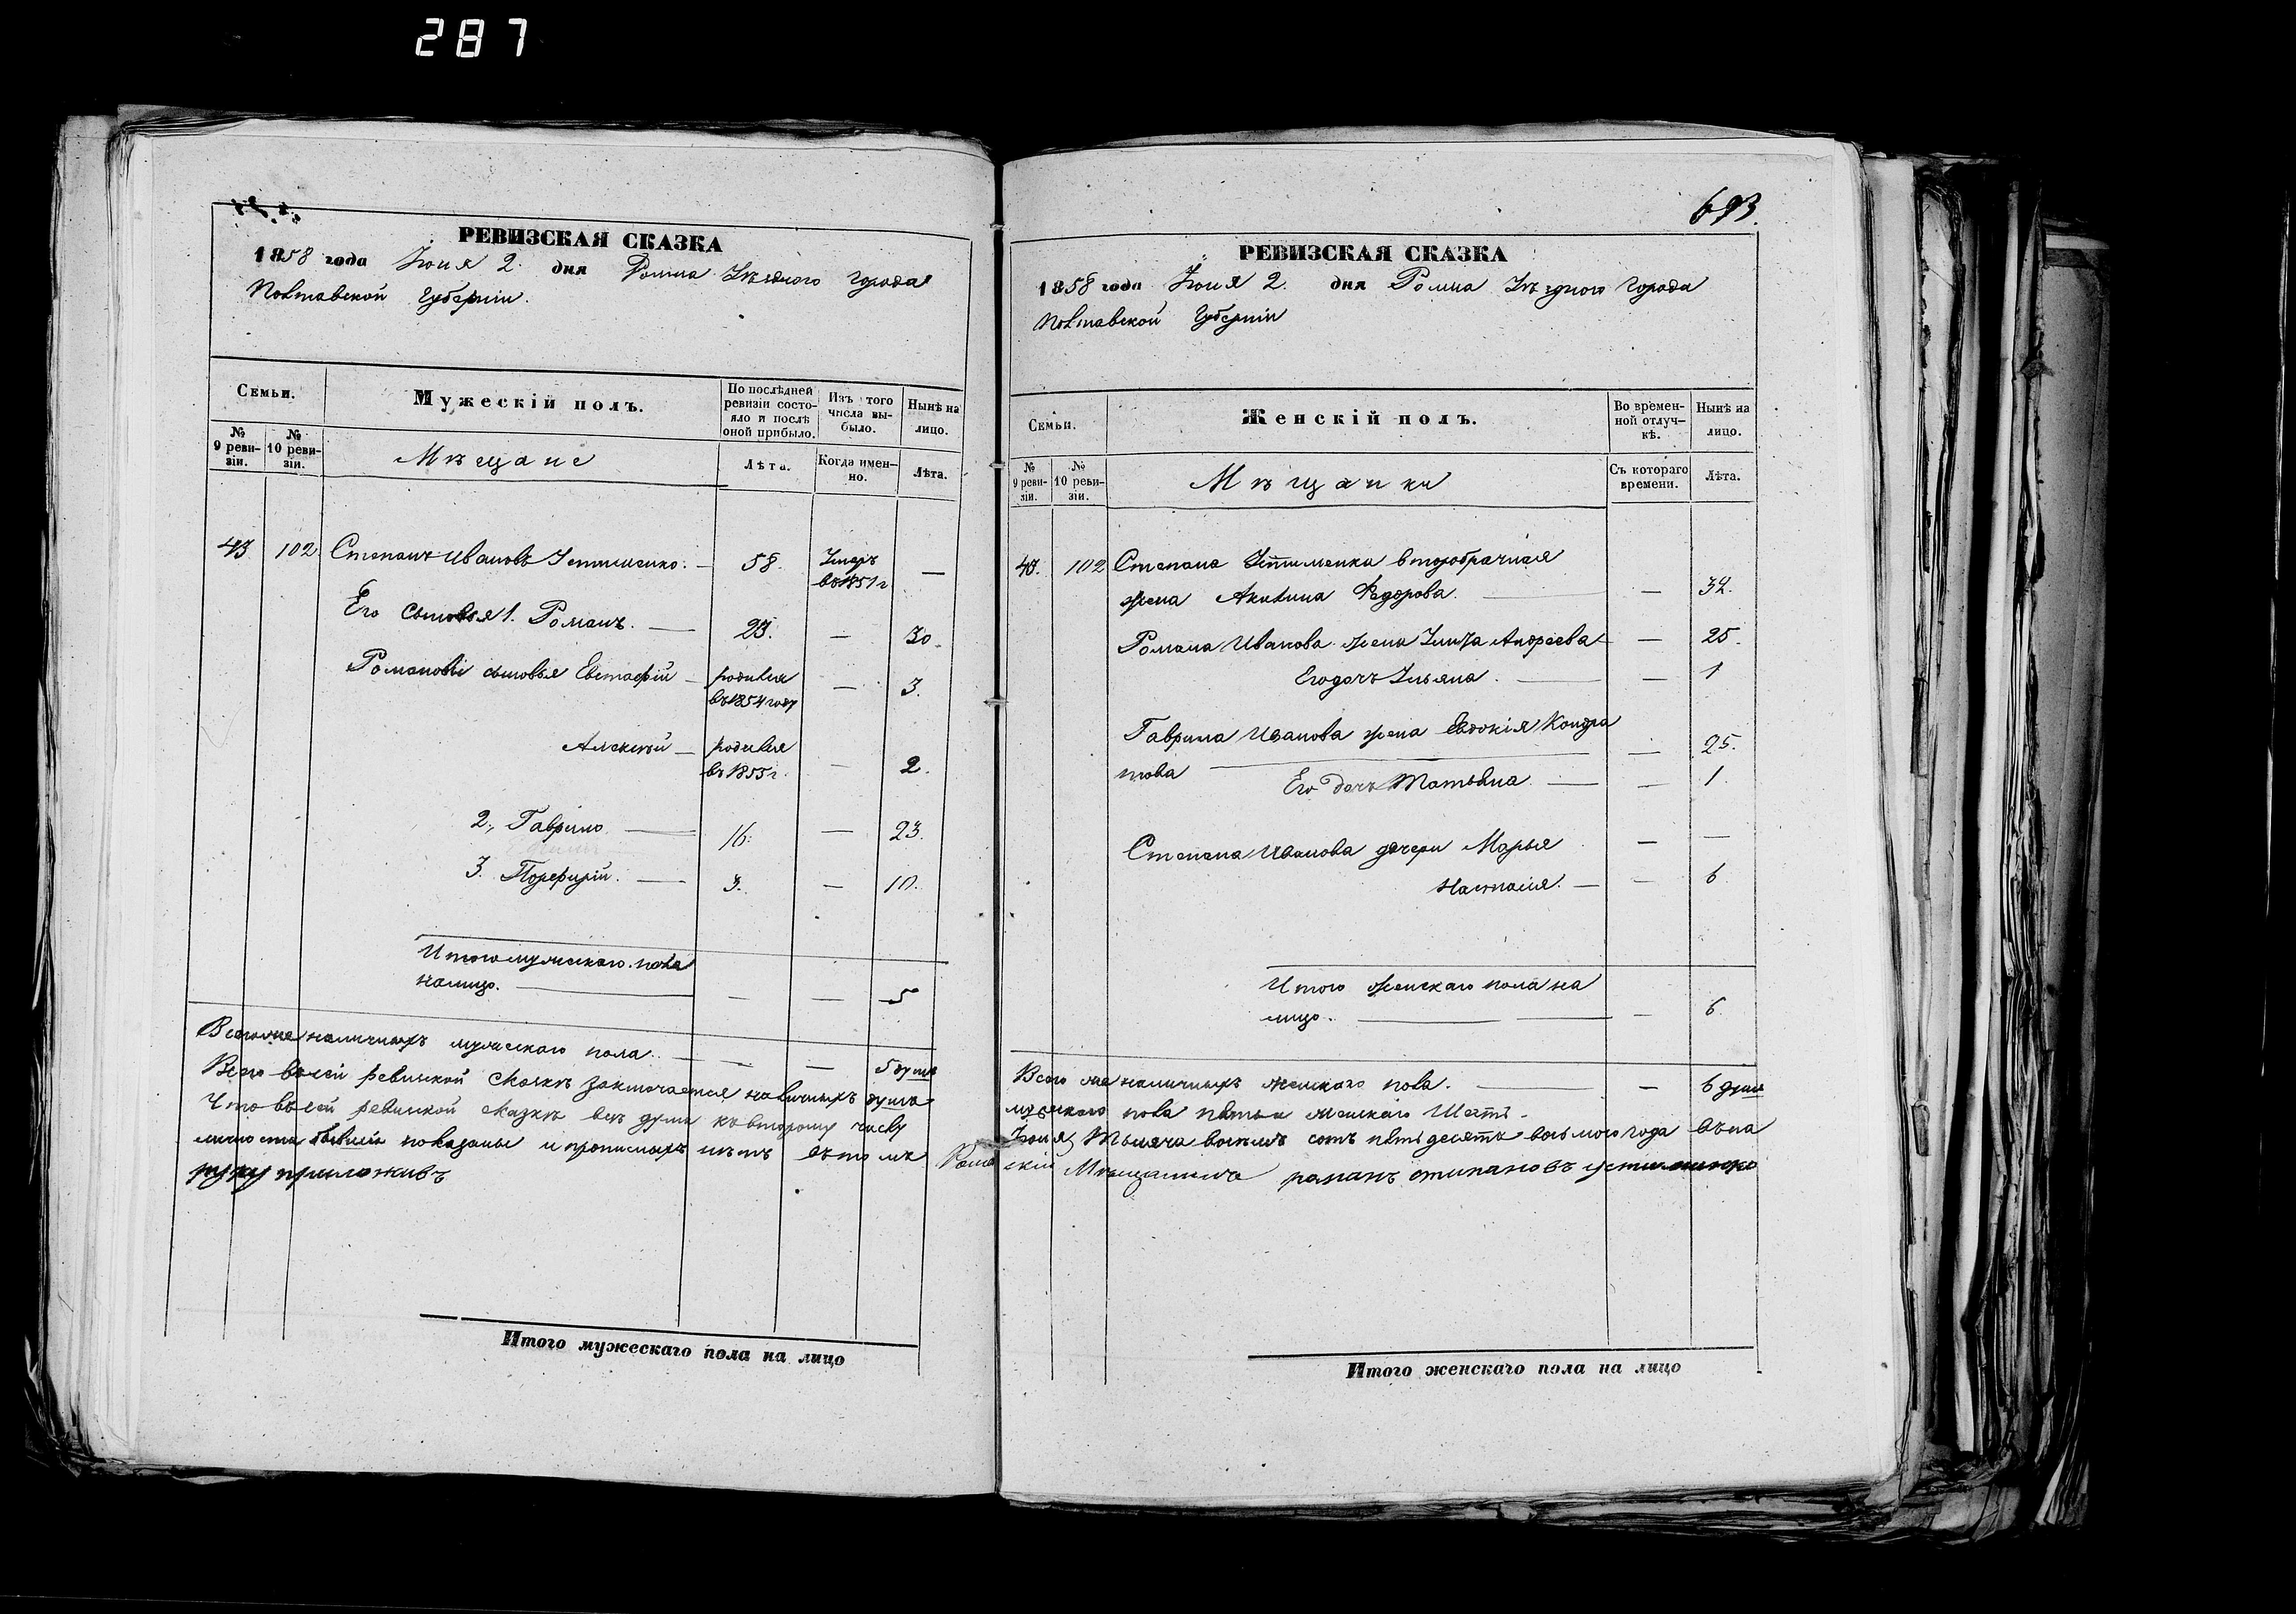 287
РЕВИЗСКАЯ СКАЗКА
1858 года Іюня 2. дня Ромна Уѣзднаго города
Полтавской Губерніи.
Семьи.
Мужескій полъ.
По послѣдней ревизіи состояло и послѣ оной прибыло.
Изъ того числа выбыло.
Нынѣ на лицо.
№ 9 ревизіи.
№ 10 ревизіи.
Мѣщане
Лѣта.
Когда именно.
Лѣта.
43 102. Степанъ Ивановъ Устименко. — 58. Умеръ —
въ 1851 г
Его сыновья 1. Романъ. — 23. — 30.
Романовы сыновья Евстафій — родился — 3.
въ 1854 году
Алексѣй — родился — 2.
въ 1855 г.
2., Гаврило. — 16. — 23.
3. Порфирій. — 3. — 10.
Итого мужескаго пола
налицо. — — — 5
Всего же наличныхъ мужескаго пола. — — — 5 душъ
Всего въ сей ревизской сказкѣ заключается наличныхъ душъ
Что въ сей ревизской сказкѣ всѣ души къ второму числу
бывшія показаны и прописныхъ нѣтъ въ томъ
руку приложивъ
Итого мужескаго пола на лицо
693.
РЕВИЗСКАЯ СКАЗКА
1858 года Іюня 2. дня Ромна Уѣзднаго города
Полтавской Губерніи
Семьи.
Женскій полъ.
Во временной отлучкѣ.
Нынѣ на лицо.
№ 9 ревизіи.
№ 10 ревизіи.
Мѣщанки
Съ котораго времени.
Лѣта.
43. 102 Степана Устименка второбрачная
жена Акилина Федорова. — — 34.
Романа Иванова жена Андреева — — 25.
Его дочь Ульяна. — — 1
Гаврила Иванова жена Евдокія Кондра
това — — 25.
Его дочь Татьяна. — — 1.
Степана Иванова дочери Марья — —
Настасия. — — 6
Итого женскаго пола на
лицо. — — — 6
Всего же наличныхъ женскаго пола. — — 6 душъ
мужскаго пола пять и женскаго шесть.
Іюня тысяча восемь сотъ пятьдесятъ восьмого года
Роменскій Мѣщанинъ романъ стипановъ устименко
Итого женскаго пола на лицо